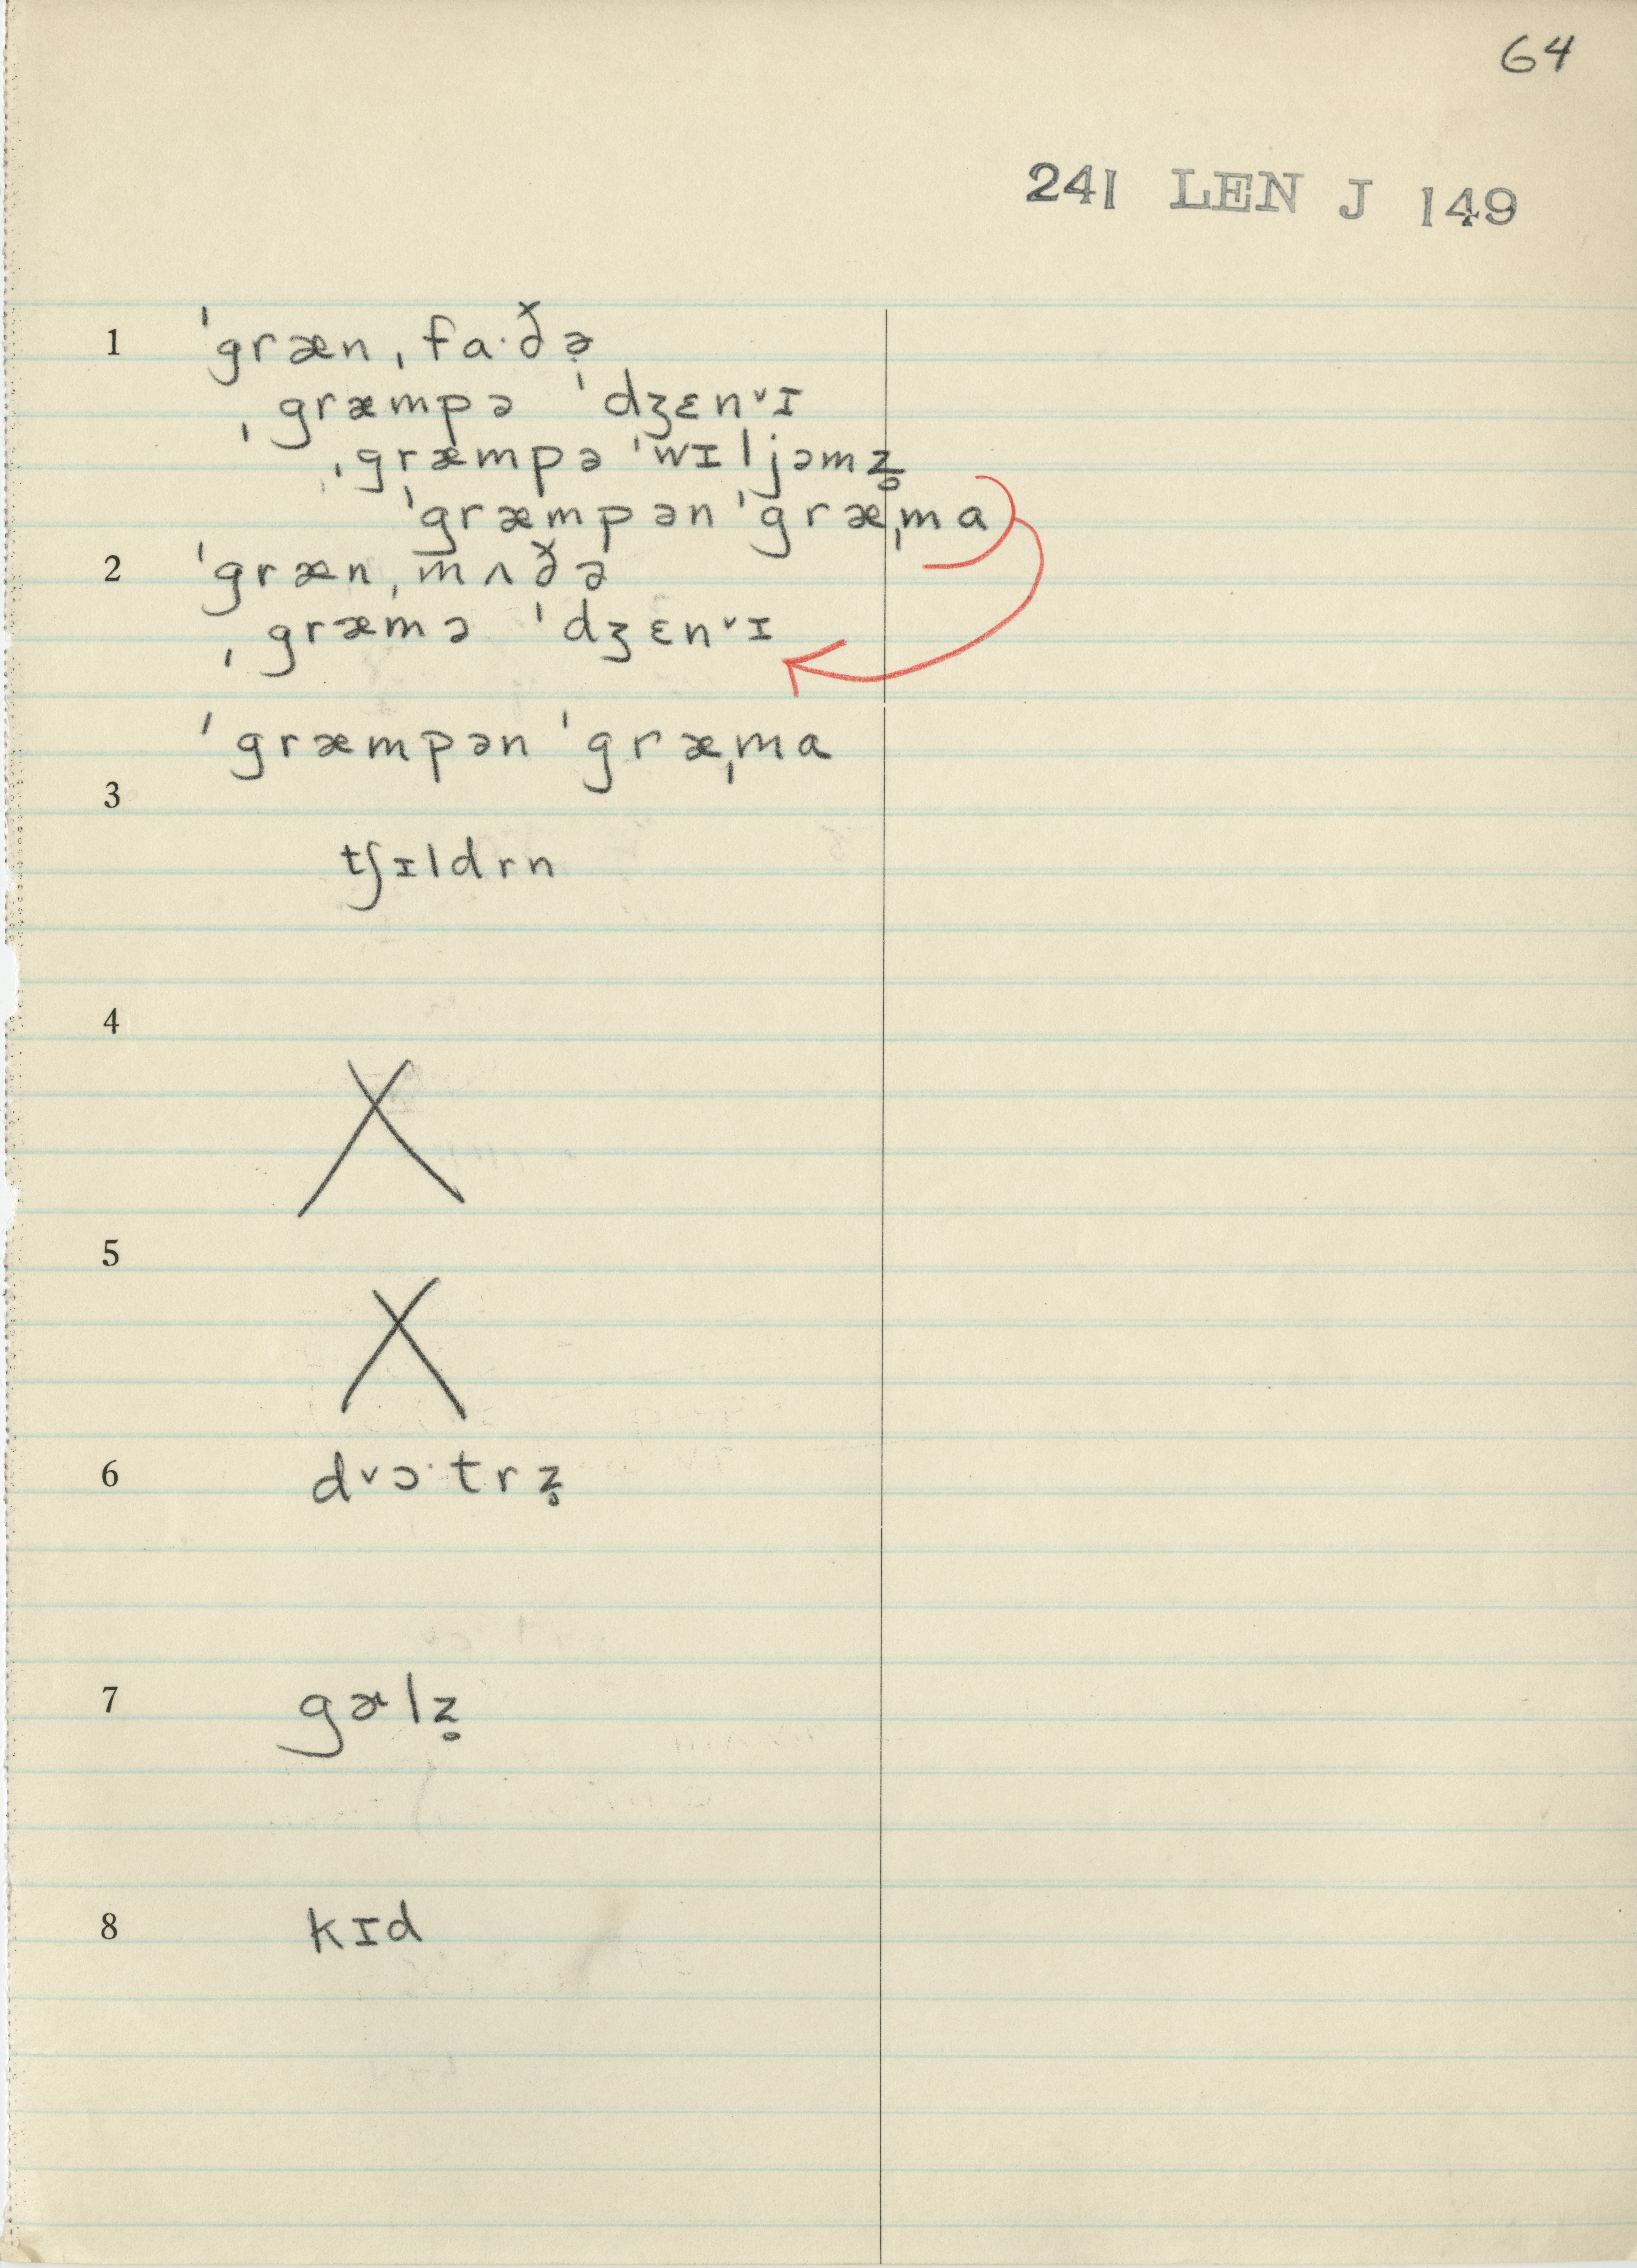 64
241 LEN J 149
1 ˈgrænˌfa·ðə̣
ˌgræmpə ˈdʒɛnᵛɪ
ˌgræmpə ˈwɪljəmz̥
ˈgræmpən ˈgræˌma
2 ˈgrænˌmʌðə
ˌgræmə ˈdʒɛnᵛɪ
ˈgræmpən ˈgræˌma
3
tʃɪldrn
4
X
5
X
6 dᵛɔ·trz̥
7 gɚlz̥
8 kɪd